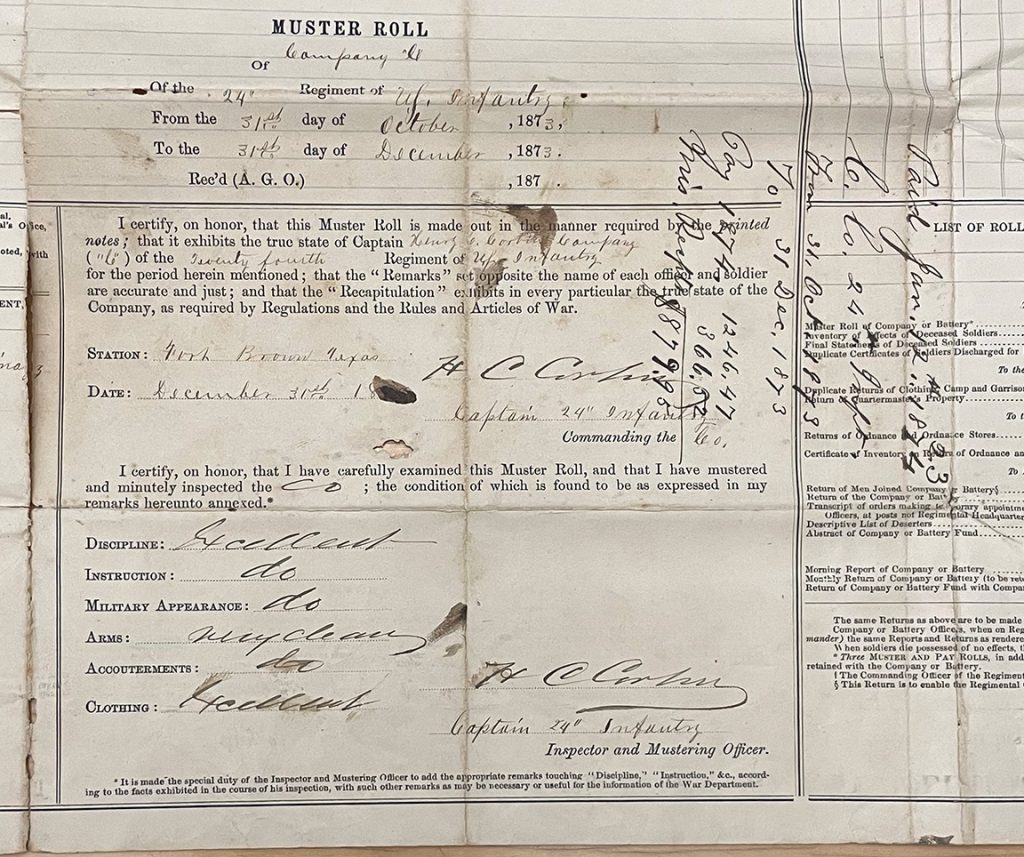 MUSTER ROLL
Of Company "C"
Of the 24" Regiment of U.S. Infantry
From the 31st day of October, 1873,
To the 31st day of December, 1873.
Rec'd (A. G. O.) , 187 .
I certify, on honor, that this Muster Roll is made out in the manner required by the printed
notes; that it exhibits the true state of Captain Henry C. Corbin's Company
("C") of the Twenty fourth Regiment of U.S. Infantry
for the period herein mentioned; that the "Remarks" set opposite the name of each officer and soldier
are accurate and just; and that the "Recapitulation" exhibits in every particular the true state of the
Company, as required by Regulations and the Rules and Articles of War.
STATION: Fort Brown Texas
DATE: December 31st 18
H C Corbin
Captain 24" Infantry
Commanding the Co.
I certify, on honor, that I have carefully examined this Muster Roll, and that I have mustered
and minutely inspected the Co ; the condition of which is found to be as expressed in my
remarks hereunto annexed.*
DISCIPLINE: Excellent
INSTRUCTION: do
MILITARY APPEARANCE: do
ARMS: very clean
ACCOUTERMENTS: do
CLOTHING: Excellent
H C Corbin
Captain 24" Infantry
Inspector and Mustering Officer.
* It is made the special duty of the Inspector and Mustering Officer to add the appropriate remarks touching "Discipline," "Instruction," &c., accord-
ing to the facts exhibited in the course of his inspection, with such other remarks as may be necessary or useful for the information of the War Department.
Paid Jan. 12 1874
Co. C. 24
From 31. Oct. 1873
To 31 Dec. 1873
Pay 1246.47
366.52
LIST OF ROLL
Muster Roll of Company or Battery*
Inventory of Effects of Deceased Soldiers
Final Statement of Deceased Soldiers
Duplicate Certificates of Soldiers Discharged for
To the
Duplicate Returns of Clothing, Camp and Garrison
Return of Quartermaster's Property
To t
Returns of Ordnance and Ordnance Stores
Certificate of Inventory on Return of Ordnance an
To
Return of Men Joined Company or Battery§
Return of the Company or Battery
Transcript of orders making temporary appointm
Officers, at posts not Regimental Headquarter
Descriptive List of Deserters
Abstract of Company or Battery Fund
Morning Report of Company or Battery
Monthly Return of Company or Battery (to be ret
Return of Company or Battery Fund with Compa
The same Returns as above are to be made
Company or Battery Officers, when on Reg
mander) the same Reports and Returns as rendere
When soldiers die possessed of no effects, th
* Three MUSTER AND PAY ROLLS, in add
retained with the Company or Battery.
† The Commanding Officer of the Regiment
§ This Return is to enable the Regimental